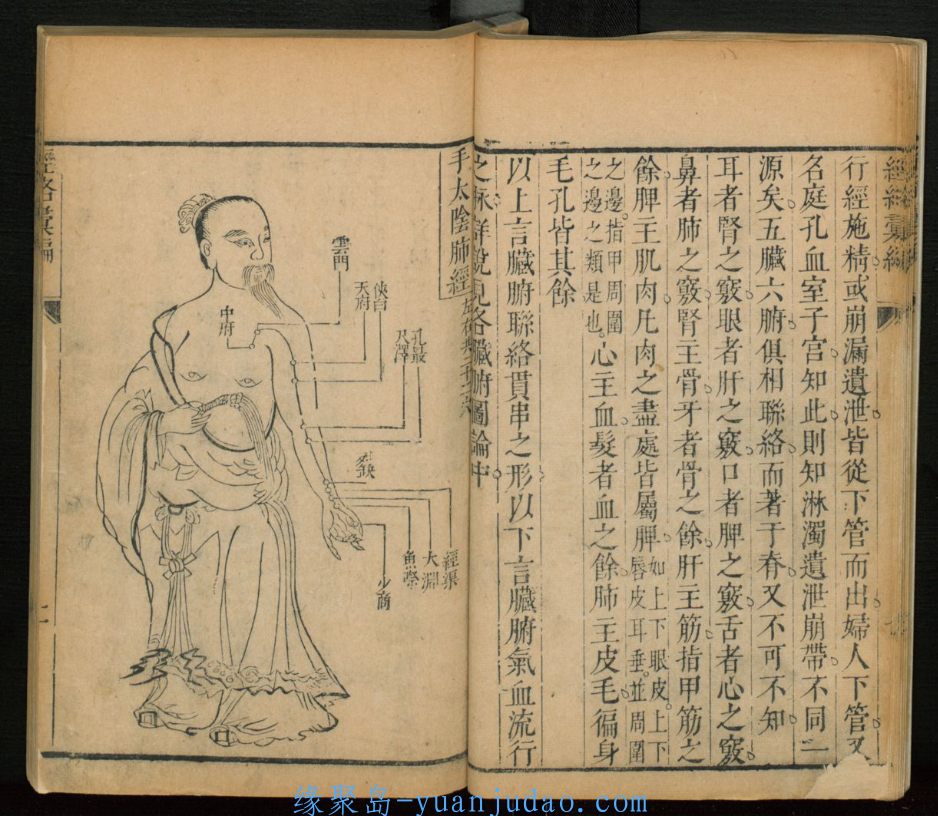 行經施精或崩漏遺泄皆從下管而出婦人下管又
名庭孔血室子宮知此則知淋濁遺泄崩帶不同二
源矣五臟六腑俱相聯絡而著于脊又不可不知
耳者腎之竅眼者肝之竅口者脾之竅舌者心之竅
鼻者肺之竅腎主骨牙者骨之餘肝主筋指甲筋之
餘脾主肌肉凡肉之盡處皆屬脾如上下眼皮上下
唇皮耳垂並周圍
之邊指甲周圍
之邊之類是也心主血髮者血之餘肺主皮毛徧身
毛孔皆其餘
以上言臟腑聯絡貫串之形以下言臟腑氣血流行
之脉詳說見各臟腑圖論中
手太陰肺經
雲門
中府
天府
俠白
尺澤
孔最
列缺
經渠
大淵
魚際
少商
經絡彙編
缘聚岛-yuanjudao.com